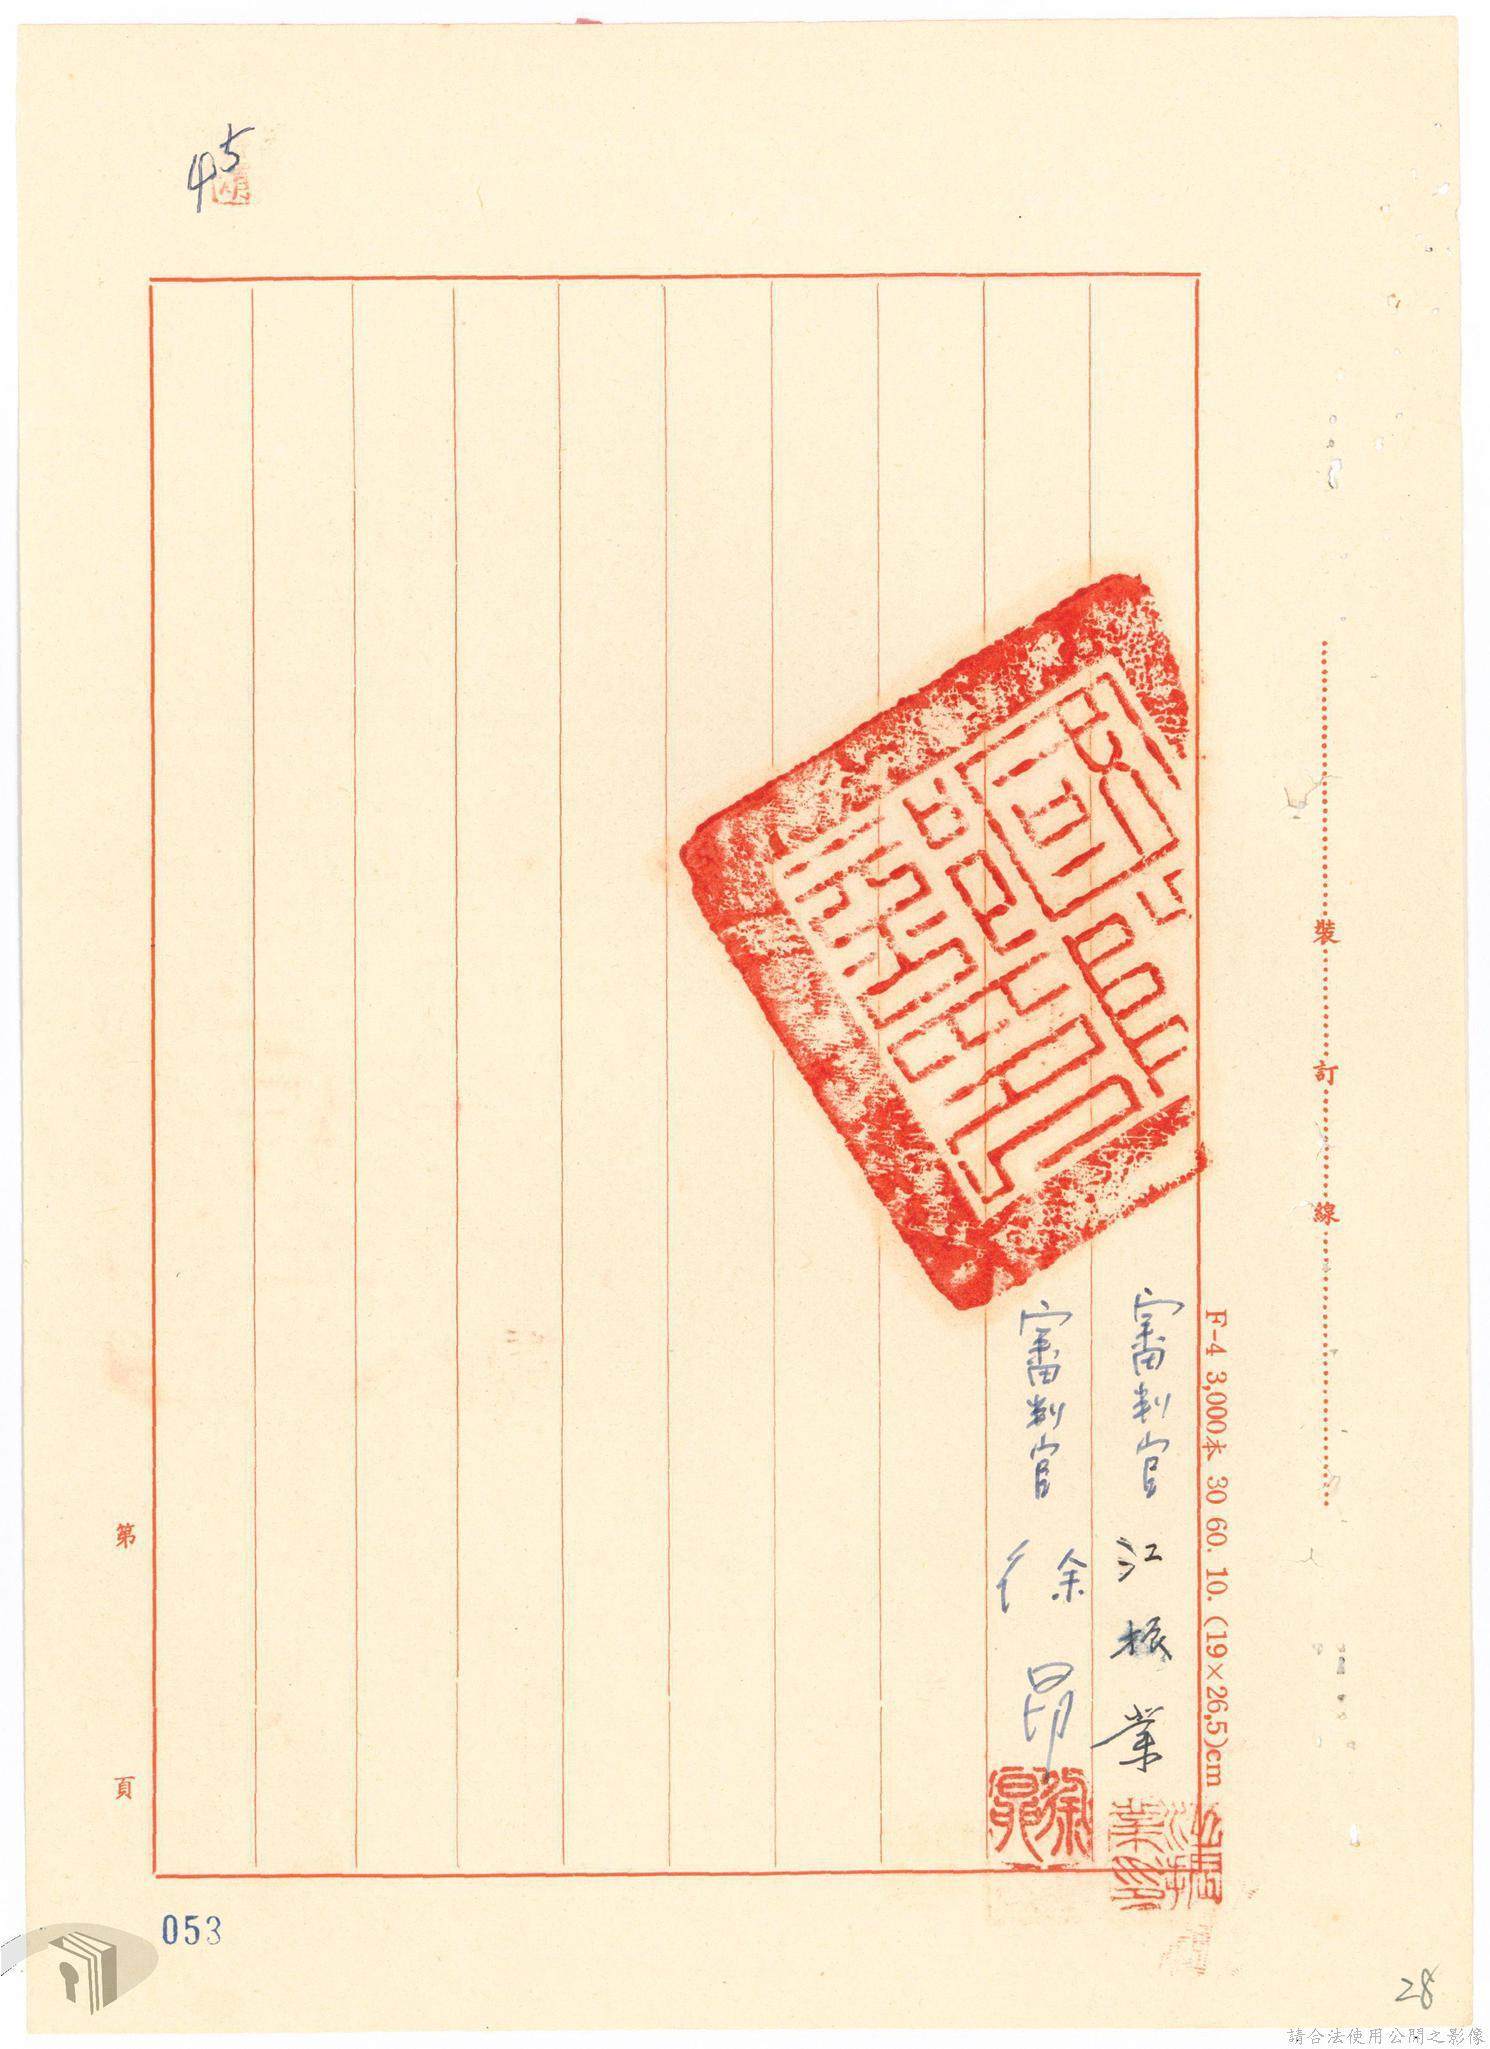 45
裝訂線
F-4 3,000本 30 60. 10. (19×26,5)cm
審判官 江振業
江振業印
審判官 徐昂
徐昂
第 頁
053
28
請合法使用公開之影像